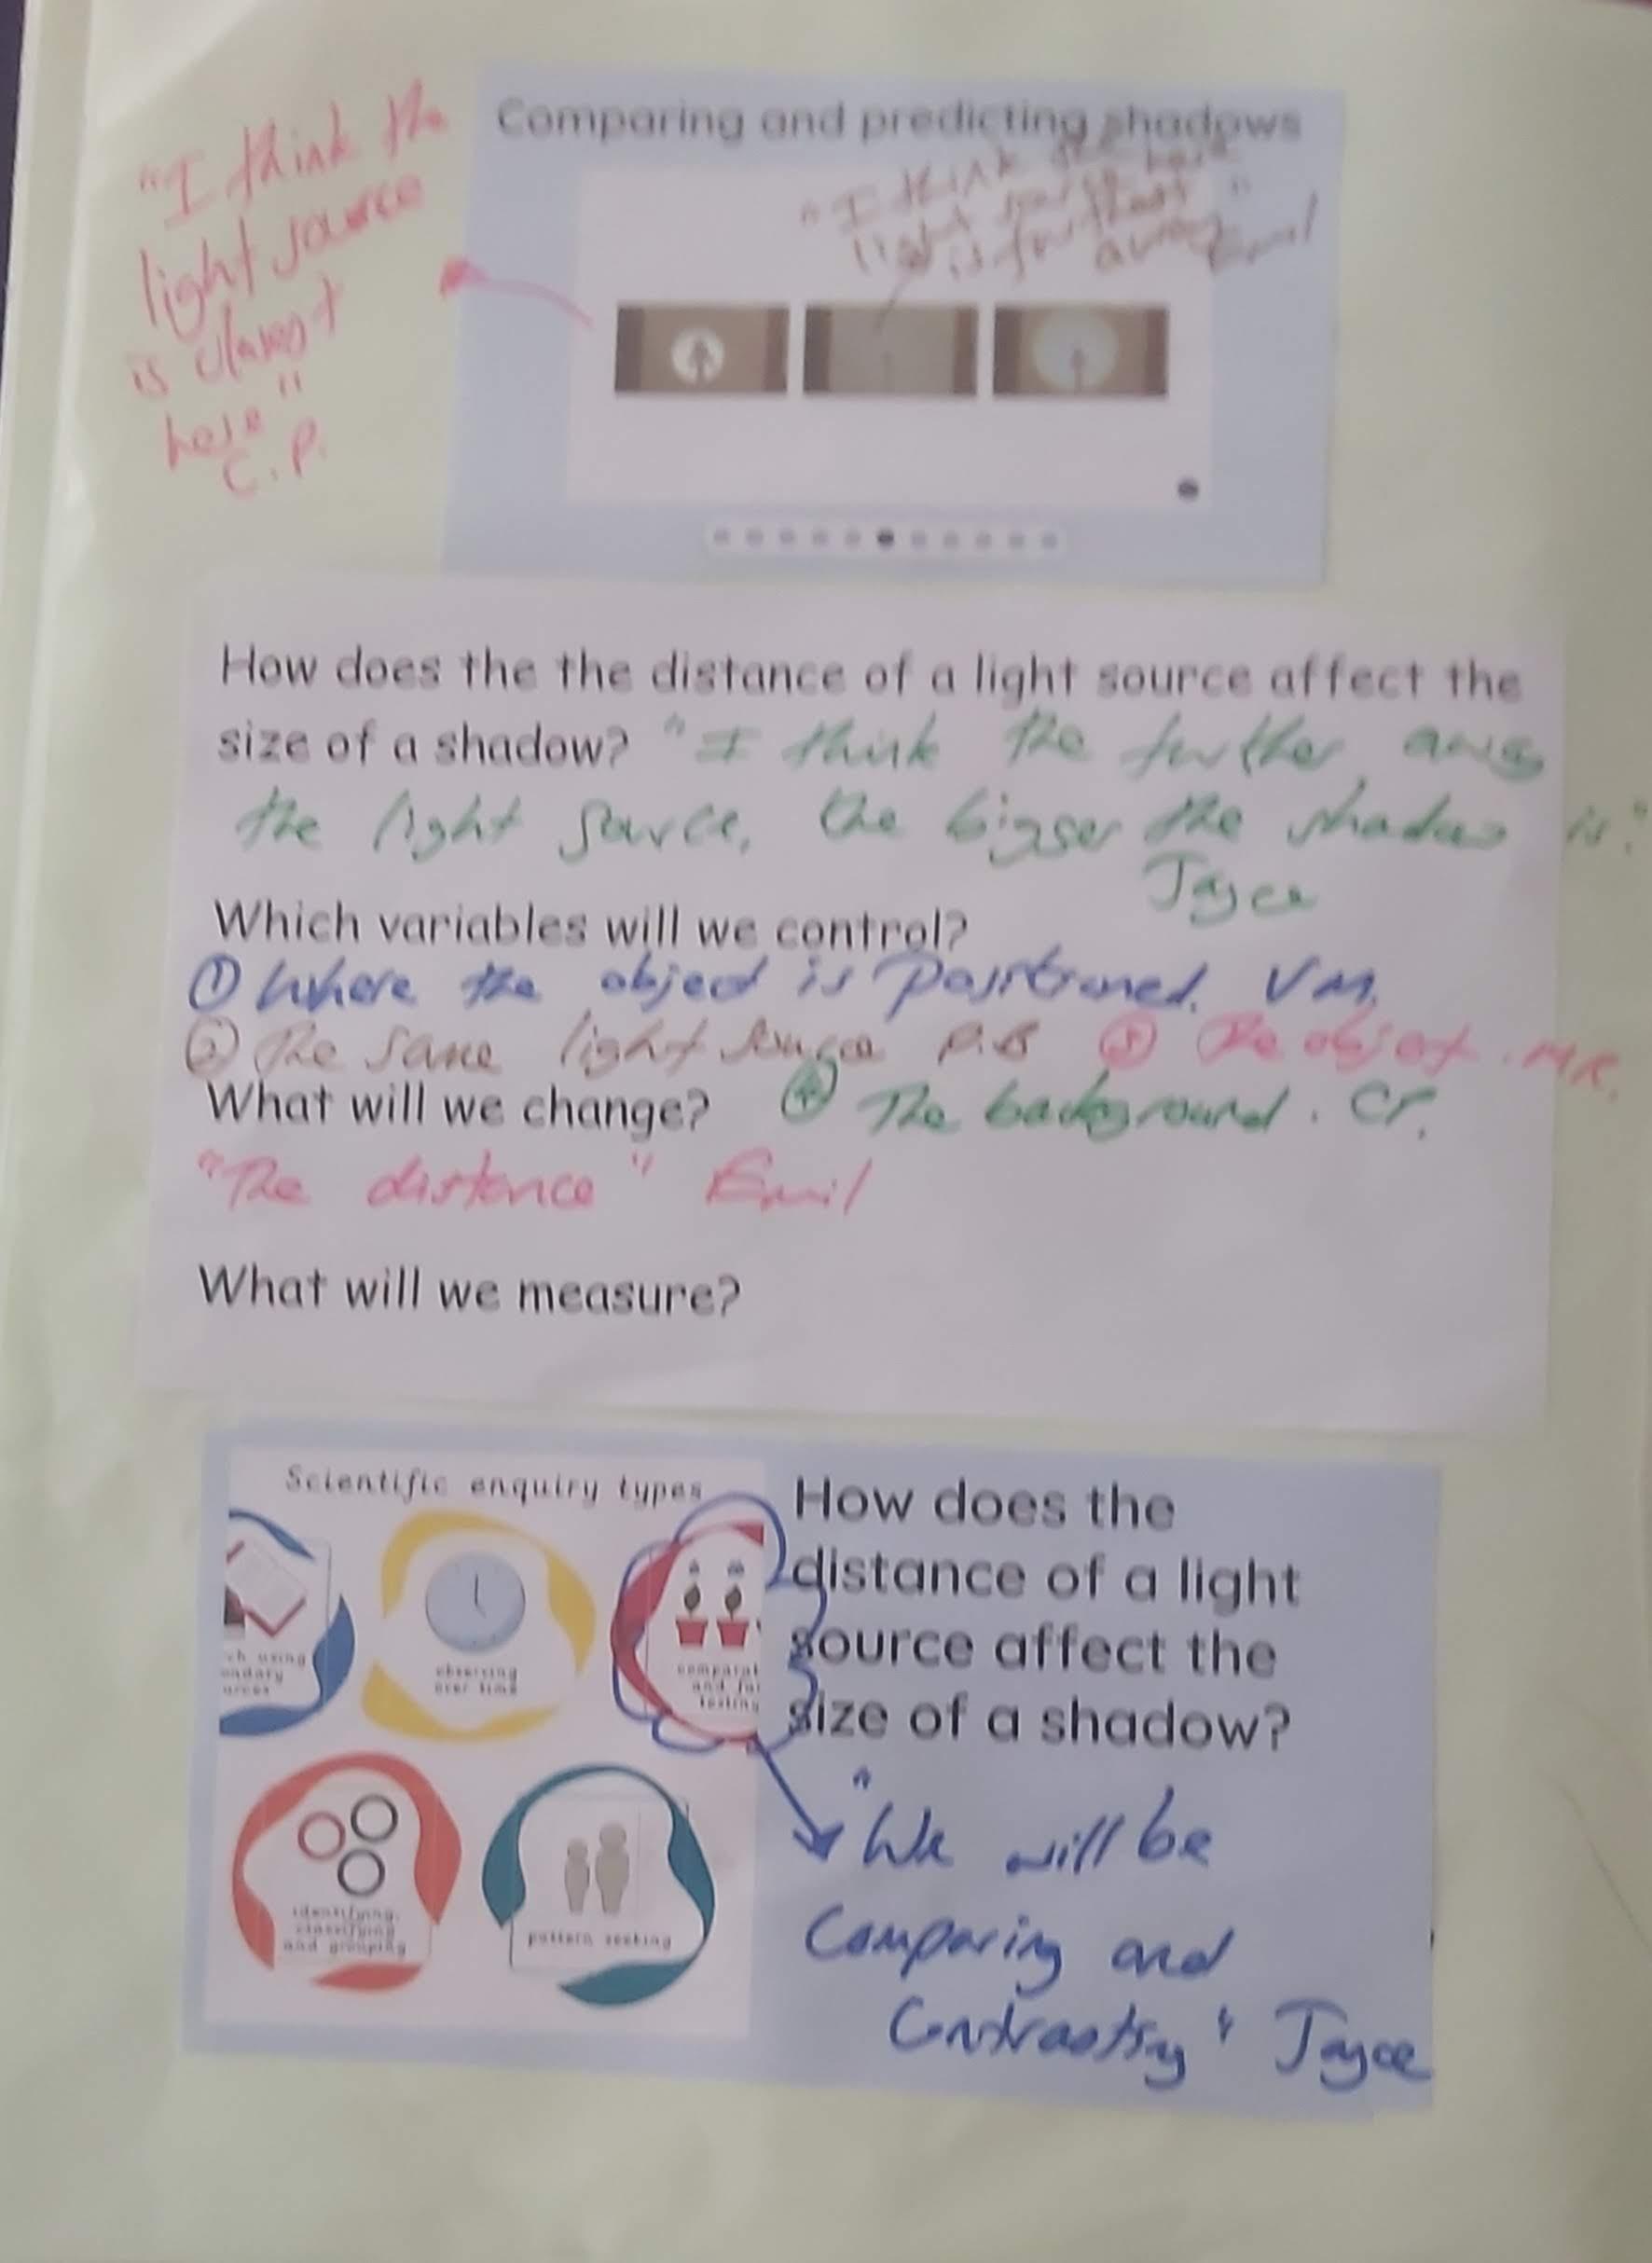 Comparing and predicting shadows
"I think the
light source
is closest
here"
C.P.
"I think the
light source here
is furthest
away"
Emil
How does the the distance of a light source affect the
size of a shadow? "I think the further away
the light source, the bigger the shadow is."
Jayce
Which variables will we control?
① Where the object is positioned. VM.
② The same light source P.B ③ The object. MR.
What will we change? ④ The background. CP.
"The distance" Emil
What will we measure?
Scientific enquiry types
ch using
ondary
urces
observing
over time
comparat
and fa
testing
identifying,
classifying
and grouping
pattern seeking
How does the
distance of a light
source affect the
size of a shadow?
"We will be
Comparing and
Contrasting" Jayce